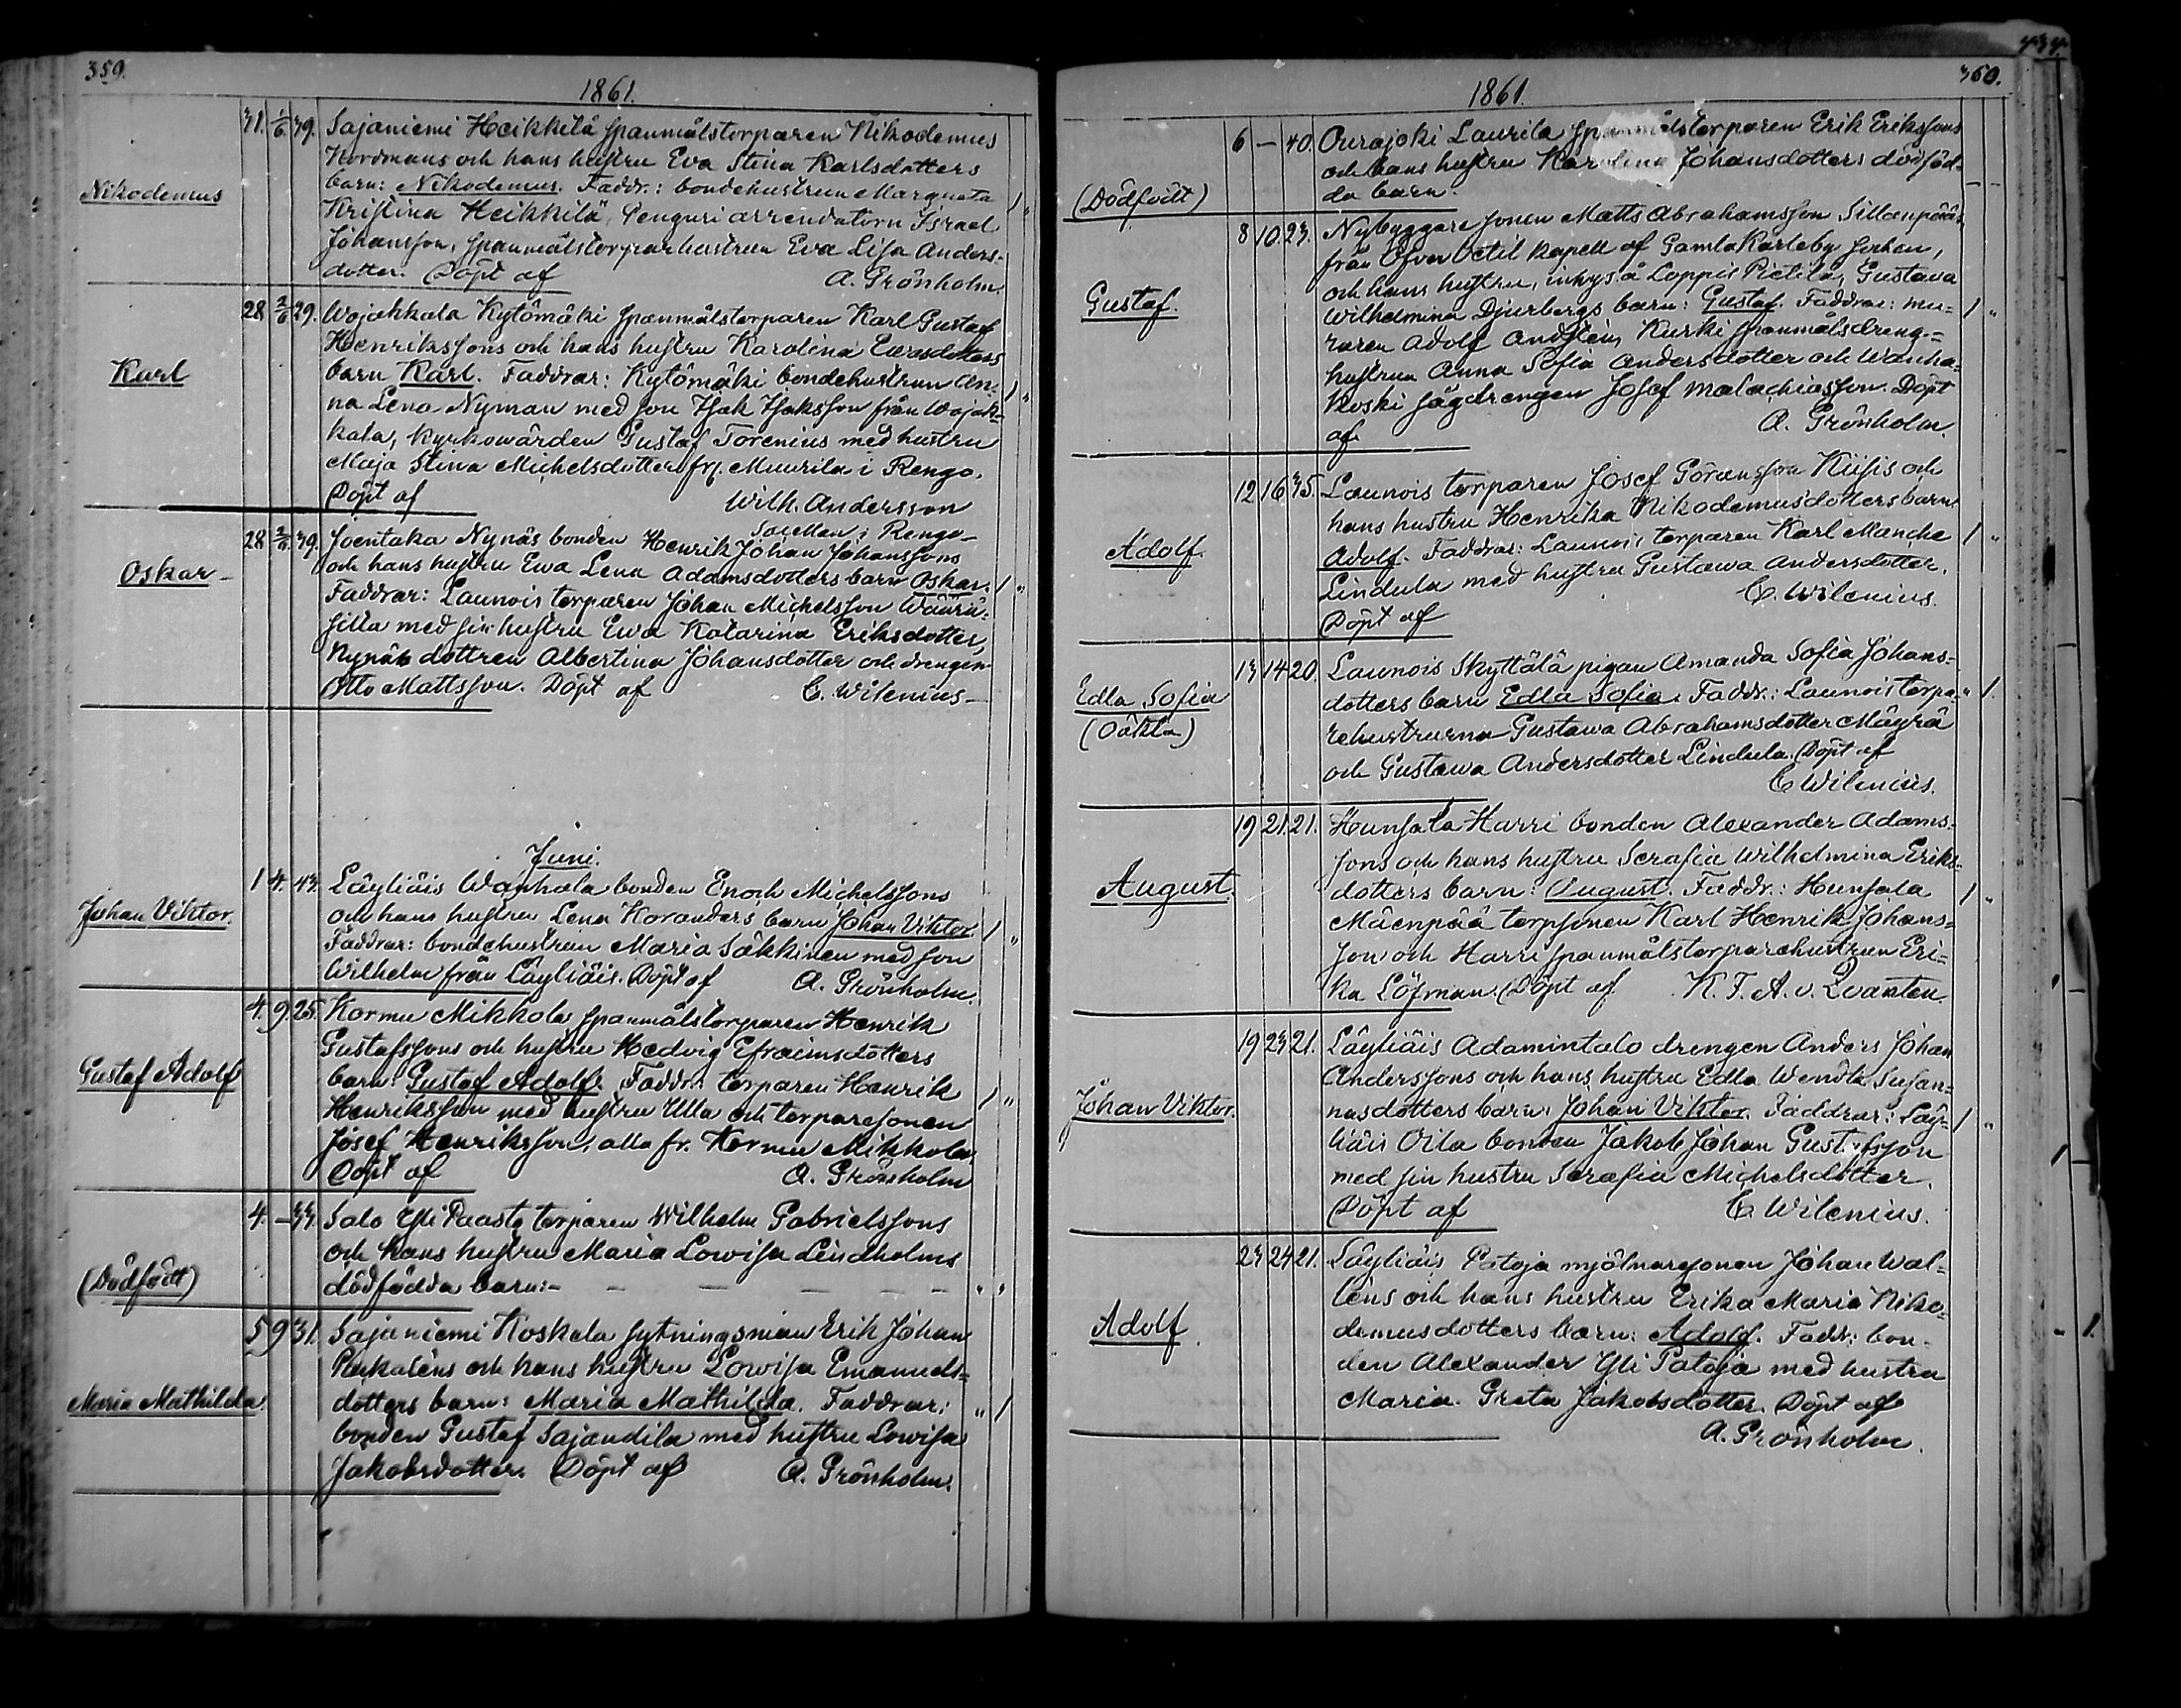 359.
1861.
Nikodemus
31. 1/6. 39. Sajaniemi Heikkilä spanmålstorparen Nikodemus
Nordmans och hans hustru Eva Stina Karlsdotters
barn: Nikodemus. Faddr.: bondehustrun Margreta
Kristina Heikkilä, Penguri arrendatorn Israel
Johansson, spanmålstorparhustrun Eva Lisa Anders-
dotter. Döpt af A. Grönholm. 1 "
Karl
28 2/6 29. Wojakkala Kytömäki spanmålstorparen Karl Gustaf
Henrikssons och hans hustru Karolina Ewasdotters
barn Karl. Faddrar: Kytömäki bondehustrun An-
na Lena Nyman med son Isak Isaksson från Wojak-
kala, kyrkowärden Gustaf Torenius med hustru
Maja Stina Michelsdotter fr. Muurila i Rengo.
Döpt af Wilh. Andersson
Sac Man i Rengo 1 "
Oskar
28 2/6. 39. Joentaka Nynäs bonden Henrik Johan Johanssons
och hans hustru Ewa Lena Adamsdotters barn Oskar.
Faddrar: Launois torparen Johan Michelsson Wäärä-
silta med sin hustru Ewa Katarina Eriksdotter,
Nynäs dottren Albertina Johansdotter och drengen
Otto Mattsson. Döpt af C. Wilenius 1 "
Juni.
Johan Viktor.
1 4. 43. Läyliäis Wanhala bonden Enoch Michelssons
och hans hustru Lena Koranders barn Johan Viktor.
Faddrar: bondehustrun Maria Säkkinen med son
Wilhelm från Läyliäis. Döpt af A. Grönholm. 1 "
Gustaf Adolf
4. 9. 25. Kormu Mikkola spanmålstorparen Henrik
Gustafssons och hustru Hedvig Efraimsdotters
barn: Gustaf Adolf. Faddr.: torparen Henrik
Henriksson med hustru Ulla och torparesonen
Josef Henriksson, alla fr. Kormu Mikkola,
Döpt af A. Grönholm 1 "
(Dödfödt)
4. — 33. Salo Yli Paasto torparen Wilhelm Gabrielssons
och hans hustru Maria Lowisa Lindholms
dödfödda barn:— — — — — — " "
Maria Mathilda
5 9 31. Sajaniemi Koskela sytningsman Erik Johan
Pukaléns och hans hustru Lowisa Emanuels-
dotters barn: Maria Mathilda. Faddrar:
bonden Gustaf Sajandila med hustru Lowisa
Jakobsdotter. Döpt af A. Grönholm. " 1
434.
360.
1861.
(Dödfödt)
6 — 40. Ourajoki Laurila spanmålstorparen Erik Erikssons
och hans hustru Karolina Johansdotters dödföd-
da barn. — —
Gustaf.
8 10. 23. Nybyggare sonen Matts Abrahamsson Sillanpääs,
från Öfver Vetil kapell af Gamla Karleby socken,
och hans hustru, inhys å Loppis Pietilä, Gustava
Wilhelmina Djurbergs barn: Gustaf. Faddrar: mu-
raren Adolf Andstén, Kurki spanmålsdreng-
hustrun Anna Sofia Andersdotter och Wanha-
koski sågdrengen Josef Malachiasson. Döpt
af A. Grönholm. 1 "
Adolf.
12 16 35. Launois torparen Josef Göransson Kiisis och
hans hustru Henrika Nikodemusdotters barn
Adolf. Faddrar: Launois torparen Karl Manche
Lindula med hustru Gustawa Andersdotter.
Döpt af C. Wilenius. 1 "
Edla Sofia
(Oäkta)
13 14 20. Launois Skyttälä pigan Amanda Sofia Johans-
dotters barn Edla Sofia. Faddr.: Launois torpa-
rehustrurna Gustawa Abrahamsdotter Mäyrä
och Gustawa Andersdotter Lindula. Döpt af
C. Wilenius. " 1.
August.
19 21. 21. Hunsala Harri bonden Alexander Adams-
sons och hans hustru Serafia Wilhelmina Eriks-
dotters barn: August. Faddr.: Hunsala
Mäenpää torpsonen Karl Henrik Johans-
son och Harri spanmålstorparehustrun Eri-
ka Löfman. Döpt af K. F. A. v. Qvanten. 1 "
Johan Viktor.
19 23 21. Läyliäis Adamintalo drengen Anders Johan
Anderssons och hans hustru Edla Wendla Susan-
nasdotters barn: Johan Viktor. Faddrar: Läy-
liäis Oila bonden Jakob Johan Gustafsson
med sin hustru Serafia Michelsdotter.
Döpt af C. Wilenius. 1 "
Adolf.
23 24 21. Läyliäis Patoja mjölnaresonen Johan Wal-
léns och hans hustru Erika Maria Niko-
demusdotters barn: Adolf. Faddr.: bon-
den Alexander Yli Patoja med hustru
Maria Greta Jakobsdotter. Döpt af
A. Grönholm.